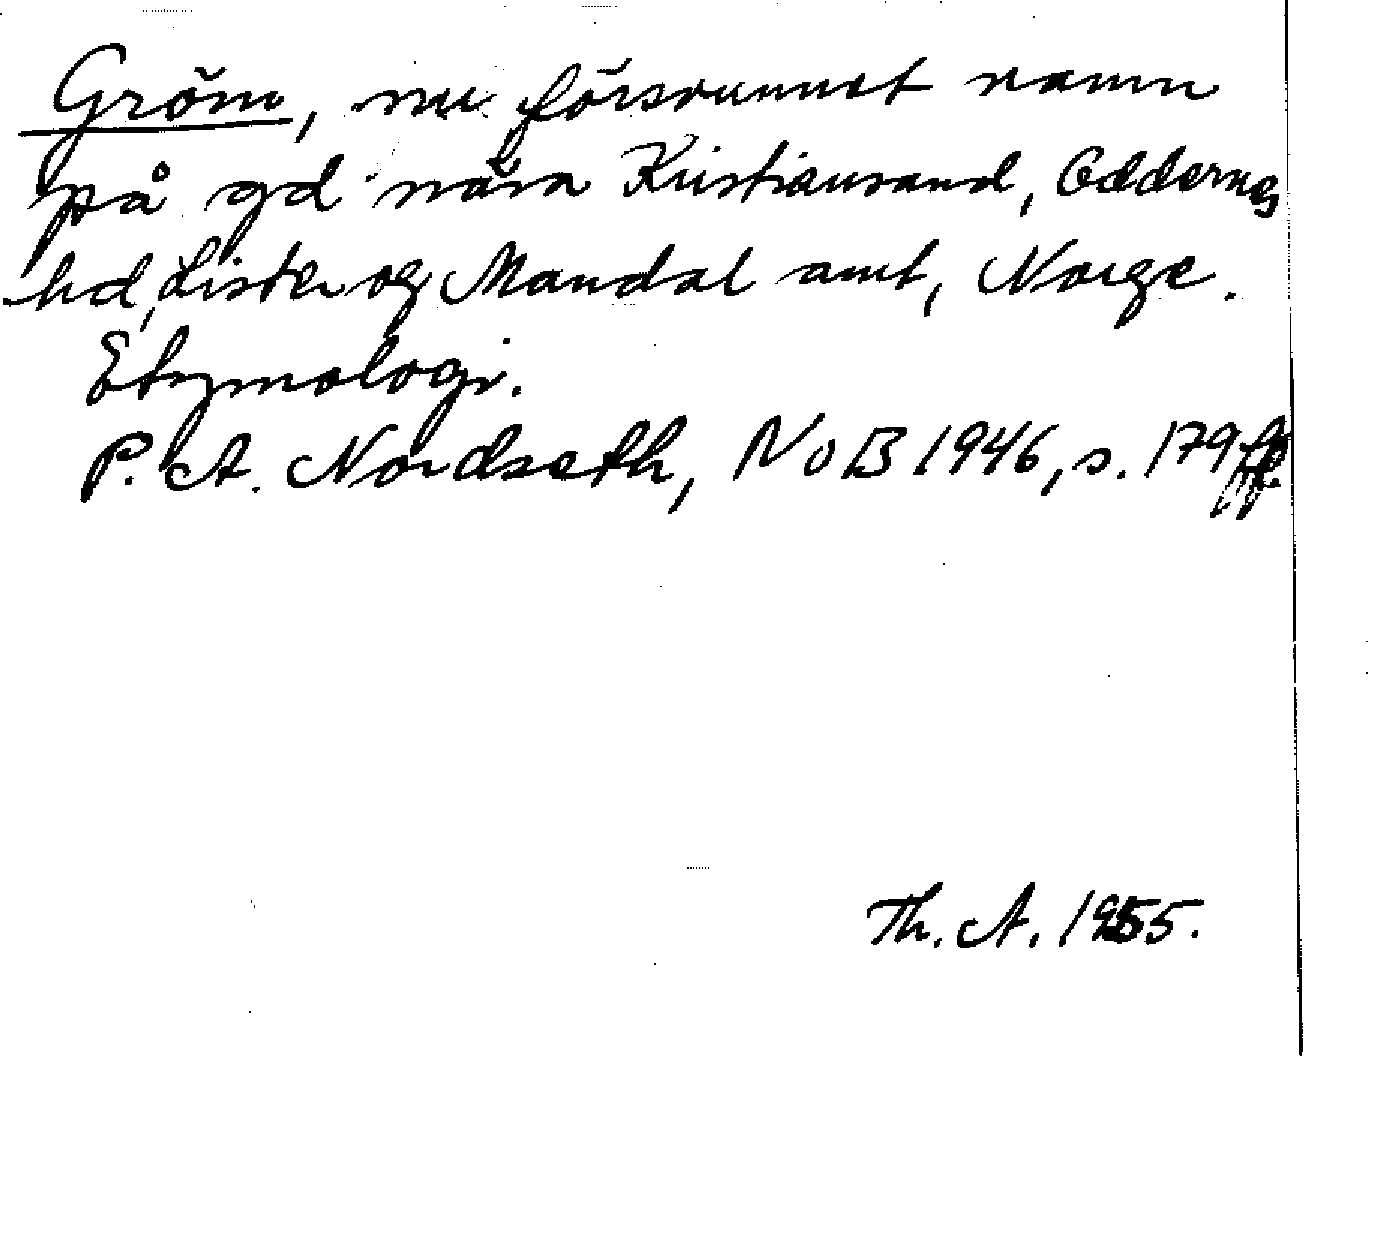 Gröm, nu försvunnet namn
på gd nära Kristiansand, Oddernes
hd, Lister og Mandal amt, Norge.
Etymologi.
P. A. Nordseth, NoB 1946, s. 179 ff.
Th. A. 1955.